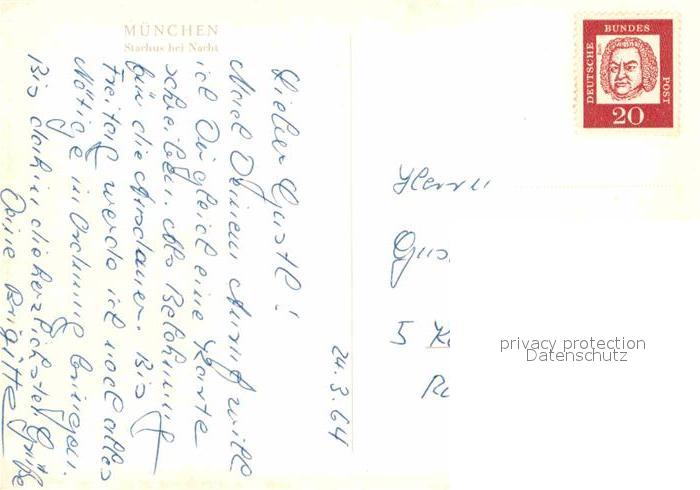 MÜNCHEN
Stachus bei Nacht
24.3.64
Lieber Gustl!
Nach Deinem Anruf will
ich Dir gleich eine Karte
schreiben. Als Belohnung
für die Ausdauer. Bis
Freitag werde ich noch alles
Nötige in Ordnung bringen.
Bis dahin die herzlichsten Grüße
Deine Brigitte
DEUTSCHE
BUNDES
POST
20
Herrn
Gus
5 K
privacy protection
Datenschutz